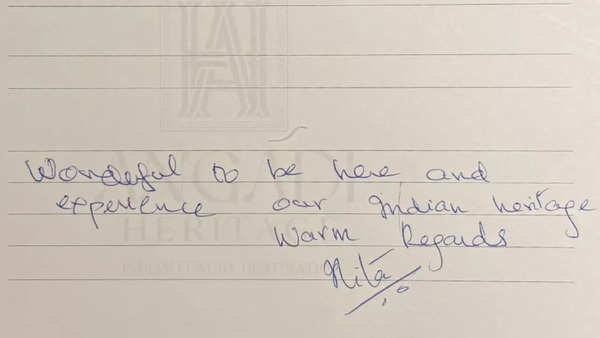 Wonderful to be here and
experience our Indian heritage
Warm Regards
Nita
HERITAGE